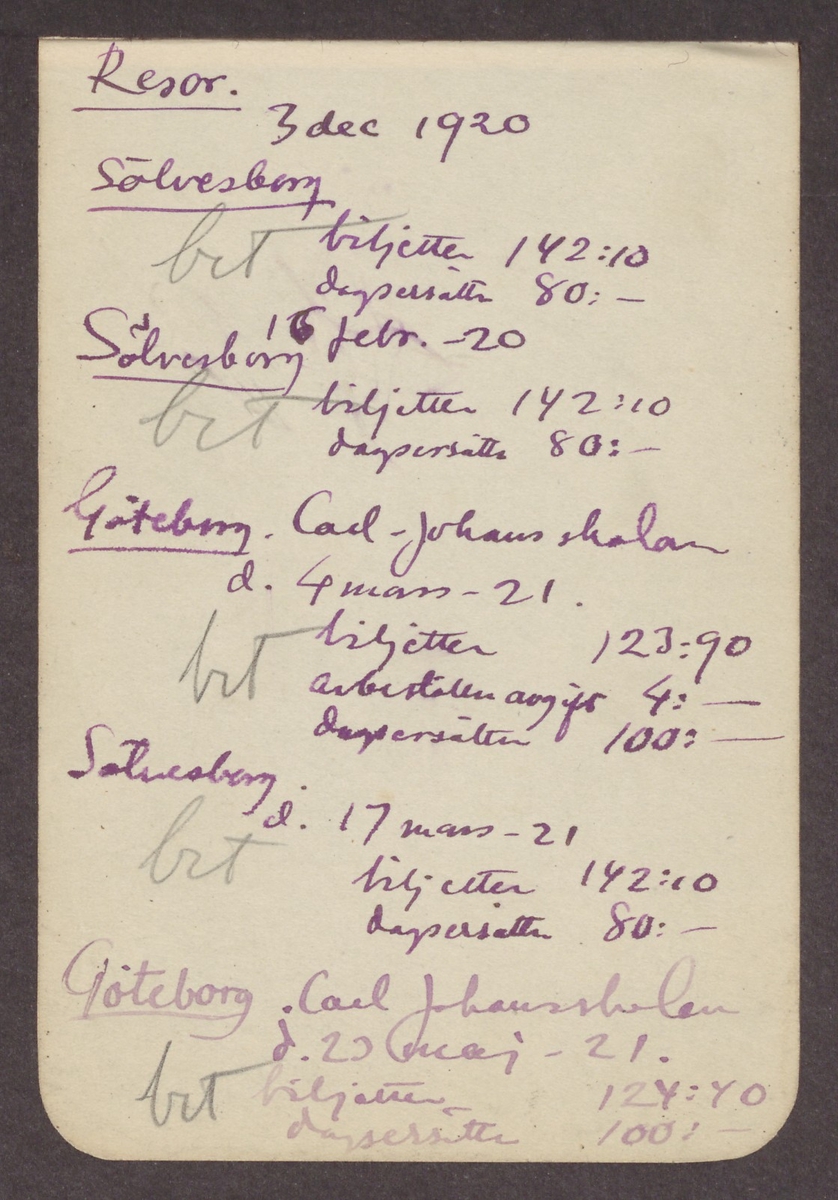 Resor.
3 dec 1920
Sölvesborg
bet biljetter 142:10
dagsersättn 80:—
Sölvesborg 16 febr. -20
bet biljetter 142:10
dagsersättn 80:—
Göteborg. Carl-Johans skolan
d. 4 mars - 21.
bet biljetter 123:90
avgift 4:—
dagsersätten 100:—
Sölvesborg.
d. 17 mars - 21
bet biljetter 142:10
dagsersättn 80:—
Göteborg. Carl Johansskolan
d. 23 maj - 21.
bet biljetter 124:40
dagsersättn 100:—